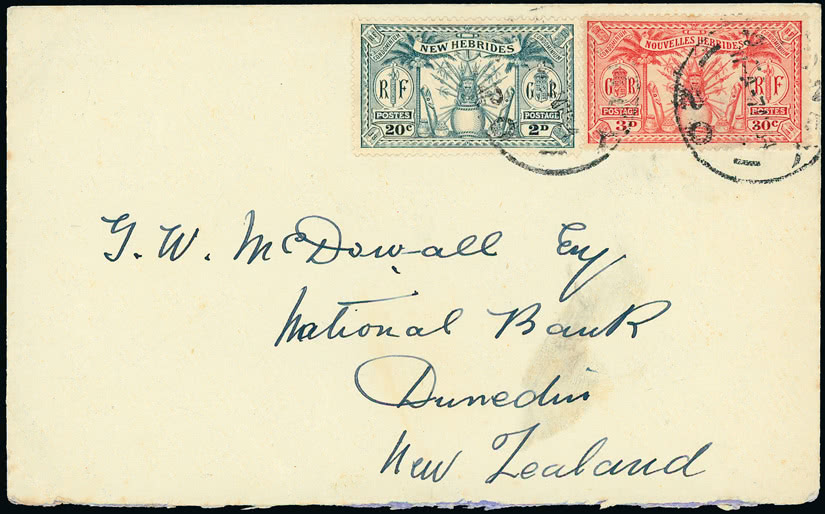 NEW HEBRIDES
RF
GR
POSTES
POSTAGE
20c
2D
NOUVELLES HEBRIDES
GR
RF
POSTAGE
POSTES
3D
30c
G. W. McDowall Esq
National Bank
Dunedin
New Zealand